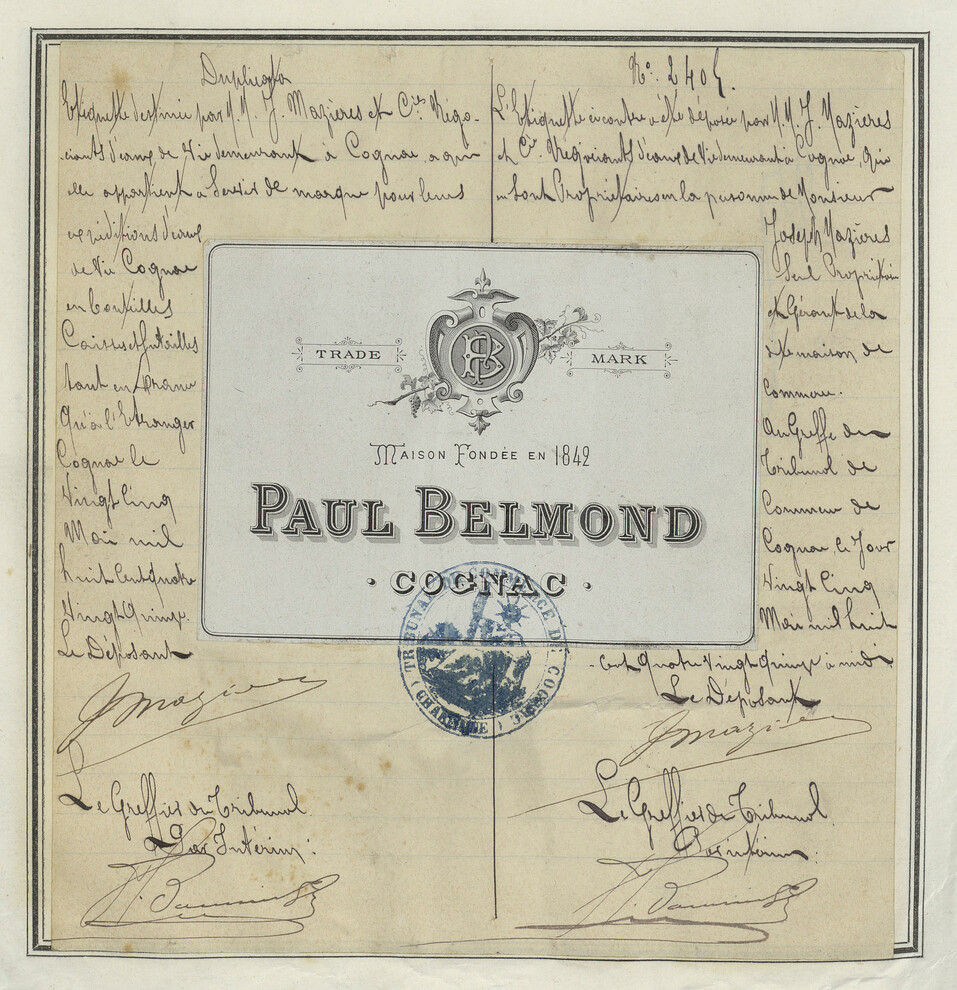 Duplicata
Etiquette destinée par M.M. J. Mazières et Cie Négo-
ciants d'eaux de Vie demeurant à Cognac a qui
elle appartient a Servir de marque pour leurs
expéditions d'eaux
de Vie Cognac
en bouteilles
Caisses et futailles
tant en France
Qu'à l'Etranger
Cognac le
Vingt Cinq
Mai mil
huit Cent quatre
Vingt Quinze.
Le Déposant
J Mazières
Le Greffier du Tribunal
Par Intérim:
N°. 2405
L'Etiquette ci contre a été déposée par M.M. J. Mazières
et Cie Négociants d'eaux de Vie demeurant à Cognac, Qui
en Sont Propriétaires en la personne de Monsieur
Joseph Mazières
Seul Propriétaire
et Gérant de la
dite maison de
Commerce.
Au Greffe du
Tribunal de
Commerce de
Cognac, le Jour
Vingt Cinq
Mai mil huit
cent quatre Vingt Quinze à midi
Le Déposant
J Mazières
Le Greffier du Tribunal
Par intérim:
TRADE MARK
PB
MAISON FONDÉE EN 1842
PAUL BELMOND
· COGNAC ·
TRIBUNAL DE COMMERCE DE COGNAC
(CHARENTE)